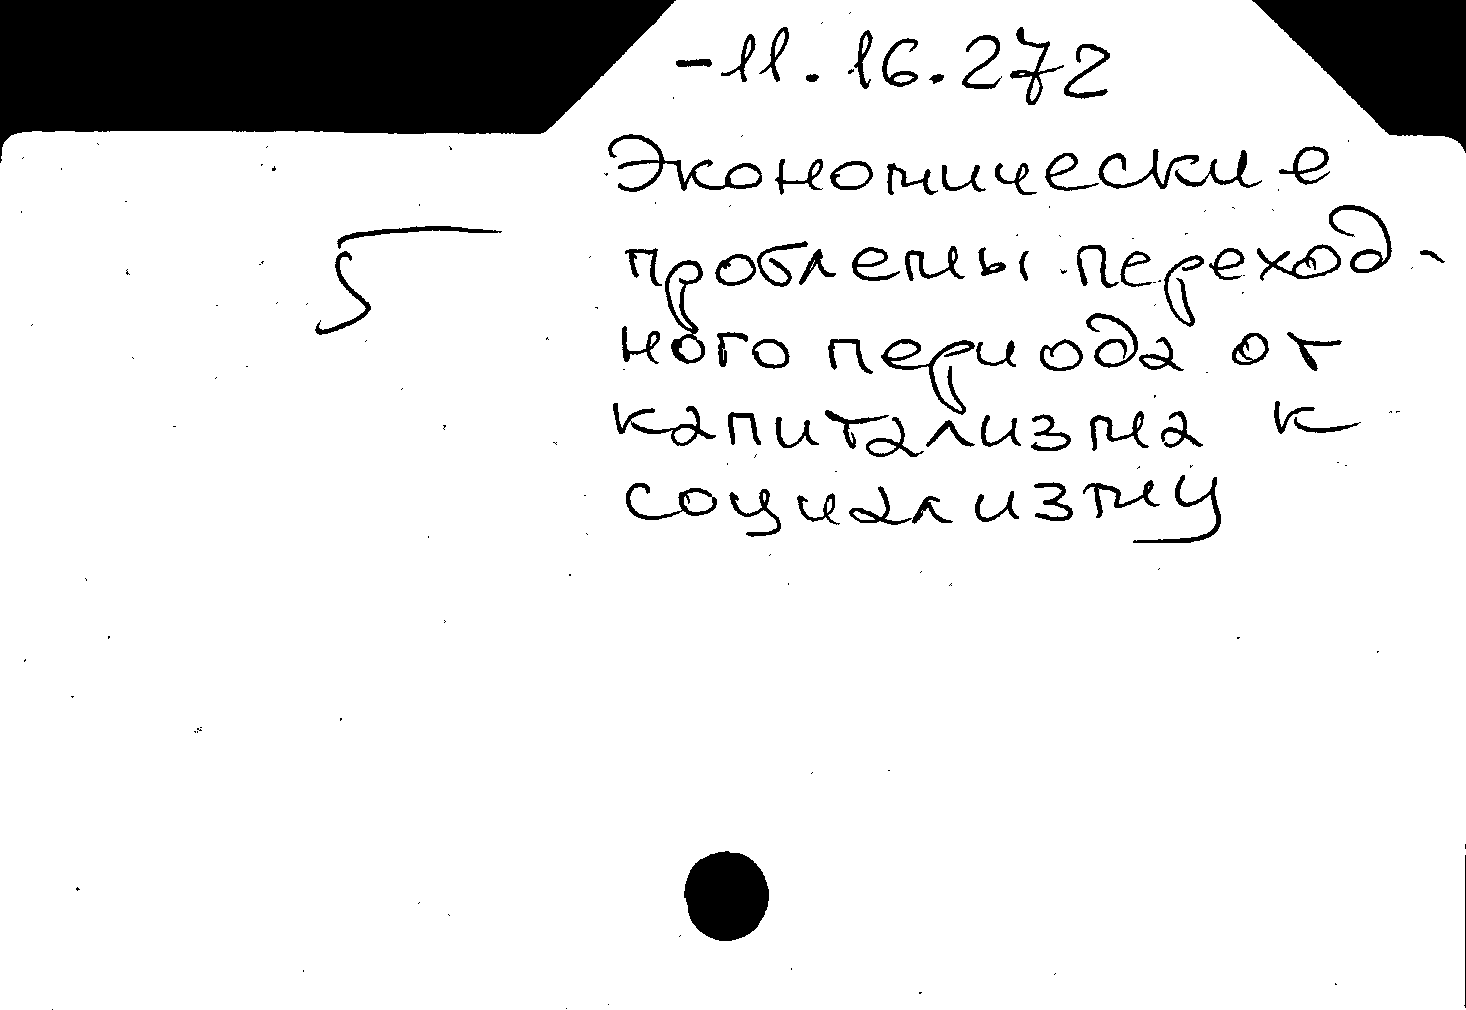 -11.16.272
Экономические
5
проблемы переход-
ного периода от
капитализма к
социализму